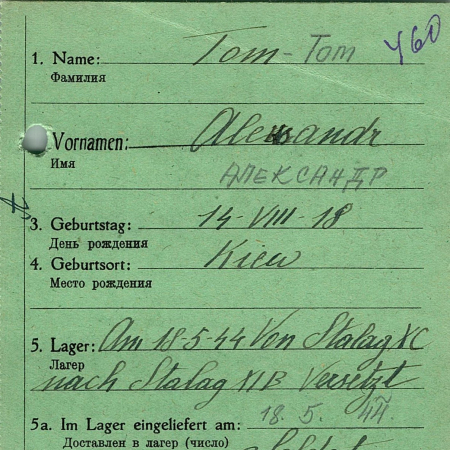 460
1. Name: Tom - Tom
Фамилия
Vornamen: Alexandr
Имя
АЛЕКСАНДР
3. Geburtstag: 14-VIII-18
День рождения
4. Geburtsort: Kiew
Место рождения
5. Lager: Am 18-5-44 Von Stalag XC
Лагер
nach Stalag XI B Versetzt
5a. Im Lager eingeliefert am: 18. 5. 44.
Доставлен в лагер (число)